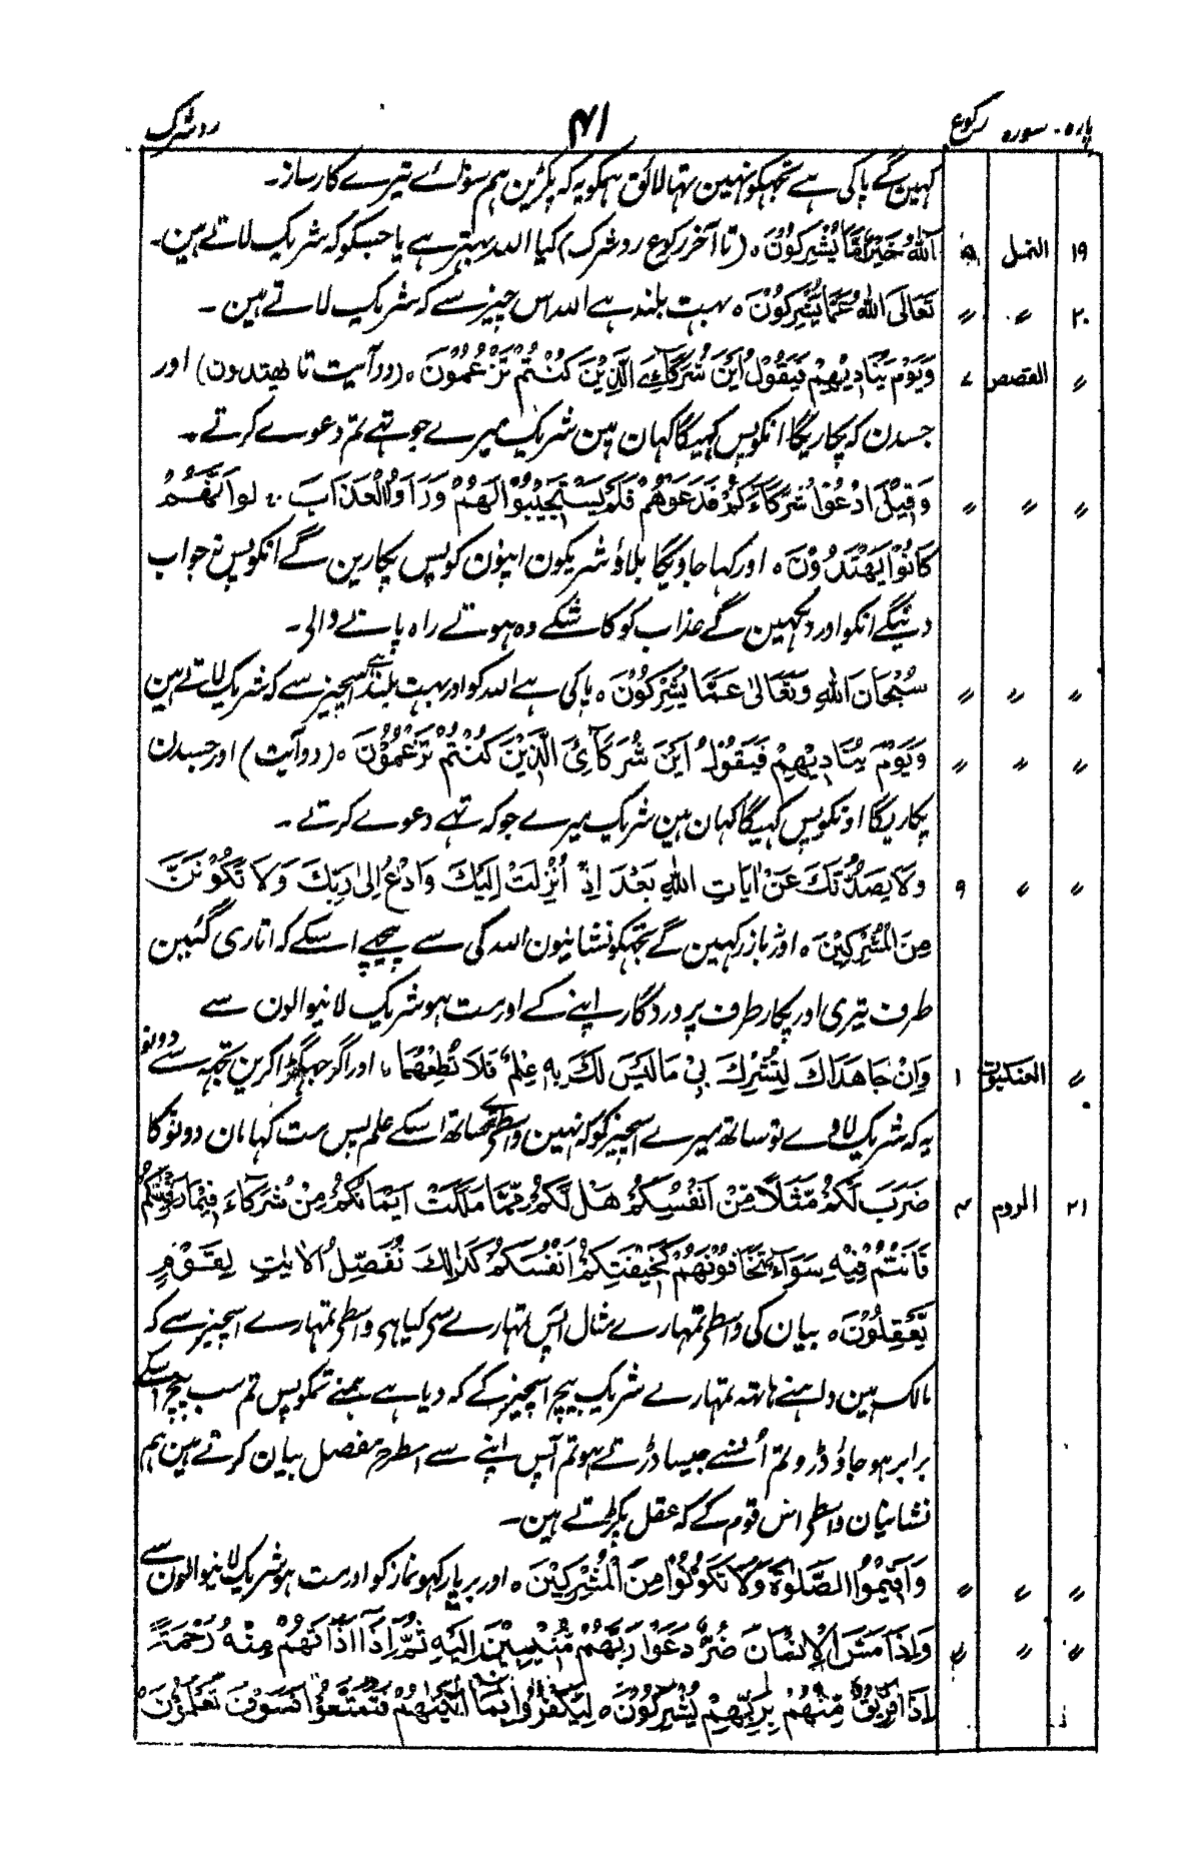 پارہ۔ سورہ رکوع ۴۱ رد شرک
کہین گے پاکی ہے تجہکو نہین تہا لائق ہمکو یہ کہ پکڑین ہم سوائے تیرے کارساز۔
۱۹ النمل ۵ آللّٰہُ خَیْرٌ اَمَّا یُشْرِکُوْنَ ہ (تا آخر رکوع رد شرک) کیا اللہ بہتر ہے یا جسکو کہ شریک لاتے ہین۔
۲۰ 〃 〃 تَعَالَی اللّٰہُ عَمَّا یُشْرِکُوْنَ ہ بہت بلند ہے اللہ اس چیز سے کہ شریک لاتے ہین ۔
〃 القصص ۷ وَیَوْمَ یُنَادِیْہِمْ فَیَقُوْلُ اَیْنَ شُرَکَآءِیَ الَّذِیْنَ کُنْتُمْ تَزْعُمُوْنَ ہ (دو آیت تا یھتدون) اور
جسدن کہ پکاریگا انکو پس کہیگا کہان ہین شریک میرے جو تہے تم دعوے کرتے ۔
〃 〃 〃 وَقِیْلَ ادْعُوْا شُرَکَآءَکُمْ فَدَعَوْھُمْ فَلَمْ یَسْتَجِیْبُوْا لَھُمْ وَرَاَوُا الْعَذَابَ ۔۔ لَوْ اَنَّھُمْ
کَانُوْا یَھْتَدُوْنَ ہ اور کہا جاویگا بلاؤ شریکون اپنون کو پس پکارین گے انکو پس نہ جواب
دینگے انکو اور دیکہین گے عذاب کو کاشکے وہ ہوتے راہ پانے والی ۔
〃 〃 〃 سُبْحَانَ اللّٰہِ وَتَعَالٰی عَمَّا یُشْرِکُوْنَ ہ پاکی ہے اللہ کو اور بہت بلند ہے اسچیز سے کہ شریک لاتے ہین
〃 〃 〃 وَیَوْمَ یُنَادِیْہِمْ فَیَقُوْلُ اَیْنَ شُرَکَآءِیَ الَّذِیْنَ کُنْتُمْ تَزْعُمُوْنَ ہ (دو آیت) اور جسدن
پکاریگا اونکو پس کہیگا کہان ہین شریک میرے جو کہ تہے دعوے کرتے ۔
〃 〃 ۹ وَلَا یَصُدُّنَّکَ عَنْ اٰیَاتِ اللّٰہِ بَعْدَ اِذْ اُنْزِلَتْ اِلَیْکَ وَادْعُ اِلٰی رَبِّکَ وَلَا تَکُوْنَنَّ
مِنَ الْمُشْرِکِیْنَ ہ اور نہ باز رکہین گے تجہکو نشانیون اللہ کی سے پیچہے اسکے کہ اتاری گئیین
طرف تیری اور پکار طرف پروردگار اپنے کے اور مت ہو شریک لانیوالون سے
〃 العنکبوت ۱ وَاِنْ جَاھَدَاکَ لِتُشْرِکَ بِیْ مَا لَیْسَ لَکَ بِہٖ عِلْمٌ فَلَا تُطِعْھُمَا ۔ اور اگر جہگڑا کرین تجہہ سے دونو
یہ کہ شریک لاوے تو ساتھ میرے اسچیز کو کہ نہین واسطے تیرے ساتھ اسکے علم پس مت کہا مان دونو کا
۲۱ الروم ۴ ضَرَبَ لَکُمْ مَّثَلًا مِّنْ اَنْفُسِکُمْ ھَلْ لَّکُمْ مِّمَّا مَلَکَتْ اَیْمَانُکُمْ مِّنْ شُرَکَآءَ فِیْمَا رَزَقْنٰکُمْ
فَاَنْتُمْ فِیْہِ سَوَآءٌ تَخَافُوْنَھُمْ کَخِیْفَتِکُمْ اَنْفُسَکُمْ کَذٰلِکَ نُفَصِّلُ الْاٰیٰتِ لِقَوْمٍ
یَّعْقِلُوْنَ ہ بیان کی واسطے تمہارے مثال آپس تمہارے سی کیا ہی واسطے تمہارے اسچیز سے کہ
مالک ہین داہنے ہاتھ تمہارے شریک بیچ اسچیز کے کہ دیا ہے ہمنے تمکو پس تم سب بیچ اسکے
برابر ہو جاؤ ڈرو تم اُنسے جیسا ڈرتے ہو تم آپس اپنے سے اسطرح مفصل بیان کرتے ہین ہم
نشانیان واسطے اس قوم کے کہ عقل پکڑتے ہین ۔
〃 〃 〃 وَاَقِیْمُوا الصَّلٰوۃَ وَلَا تَکُوْنُوْا مِنَ الْمُشْرِکِیْنَ ہ اور برپا رکہو نماز کو اور مت ہو شریک لانیوالون سے
〃 〃 〃 وَاِذَا مَسَّ الْاِنْسَانَ ضُرٌّ دَعَوْا رَبَّھُمْ مُّنِیْبِیْنَ اِلَیْہِ ثُمَّ اِذَا اَذَاقَھُمْ مِنْہُ رَحْمَۃً
اِذَا فَرِیْقٌ مِّنْھُمْ بِرَبِّہِمْ یُشْرِکُوْنَ ہ لِیَکْفُرُوْا بِمَا اٰتَیْنٰھُمْ فَتَمَتَّعُوْا فَسَوْفَ تَعْلَمُوْنَ